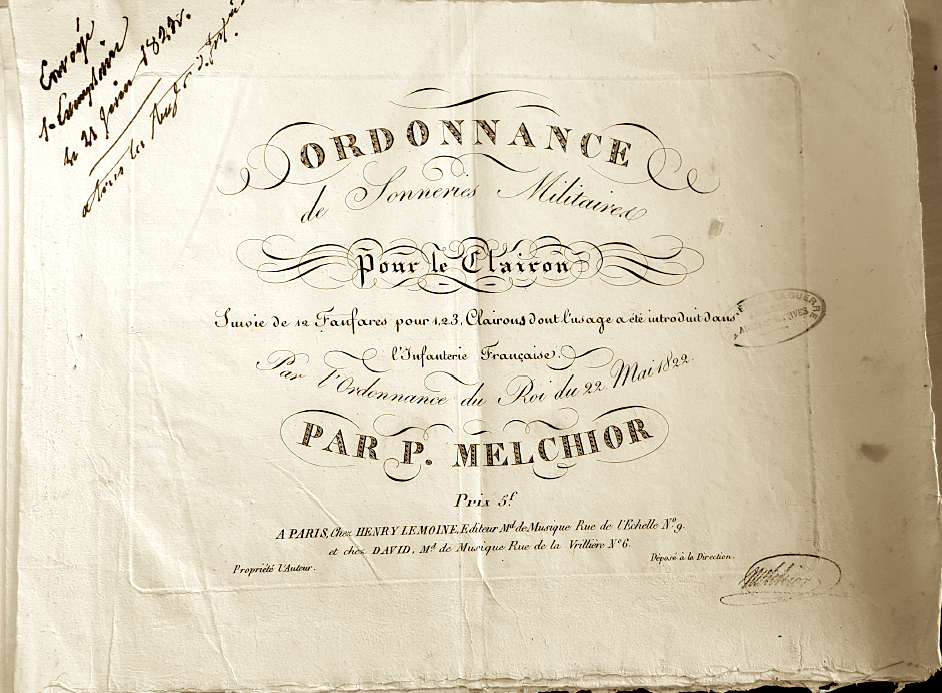 Envoyé
1. Exemplaire
le 21 Juin 1823.
a tous les
ORDONNANCE
de Sonneries Militaires
Pour le Clairon
Suivie de 12 Fanfares pour 1,2,3, Clairons dont l'usage a été introduit dans
l'Infanterie Française.
Par l'Ordonnance du Roi du 22 Mai 1822.
PAR P. MELCHIOR
Prix 5f.
A PARIS, Chez HENRY LEMOINE, Editeur Md. de Musique Rue de l'Echelle No. 9.
et chez DAVID, Md. de Musique Rue de la Vrillière No 6.
Propriété l'Auteur.
Déposé à la Direction.
LA GUERRE
ARCHIVES
Melchior